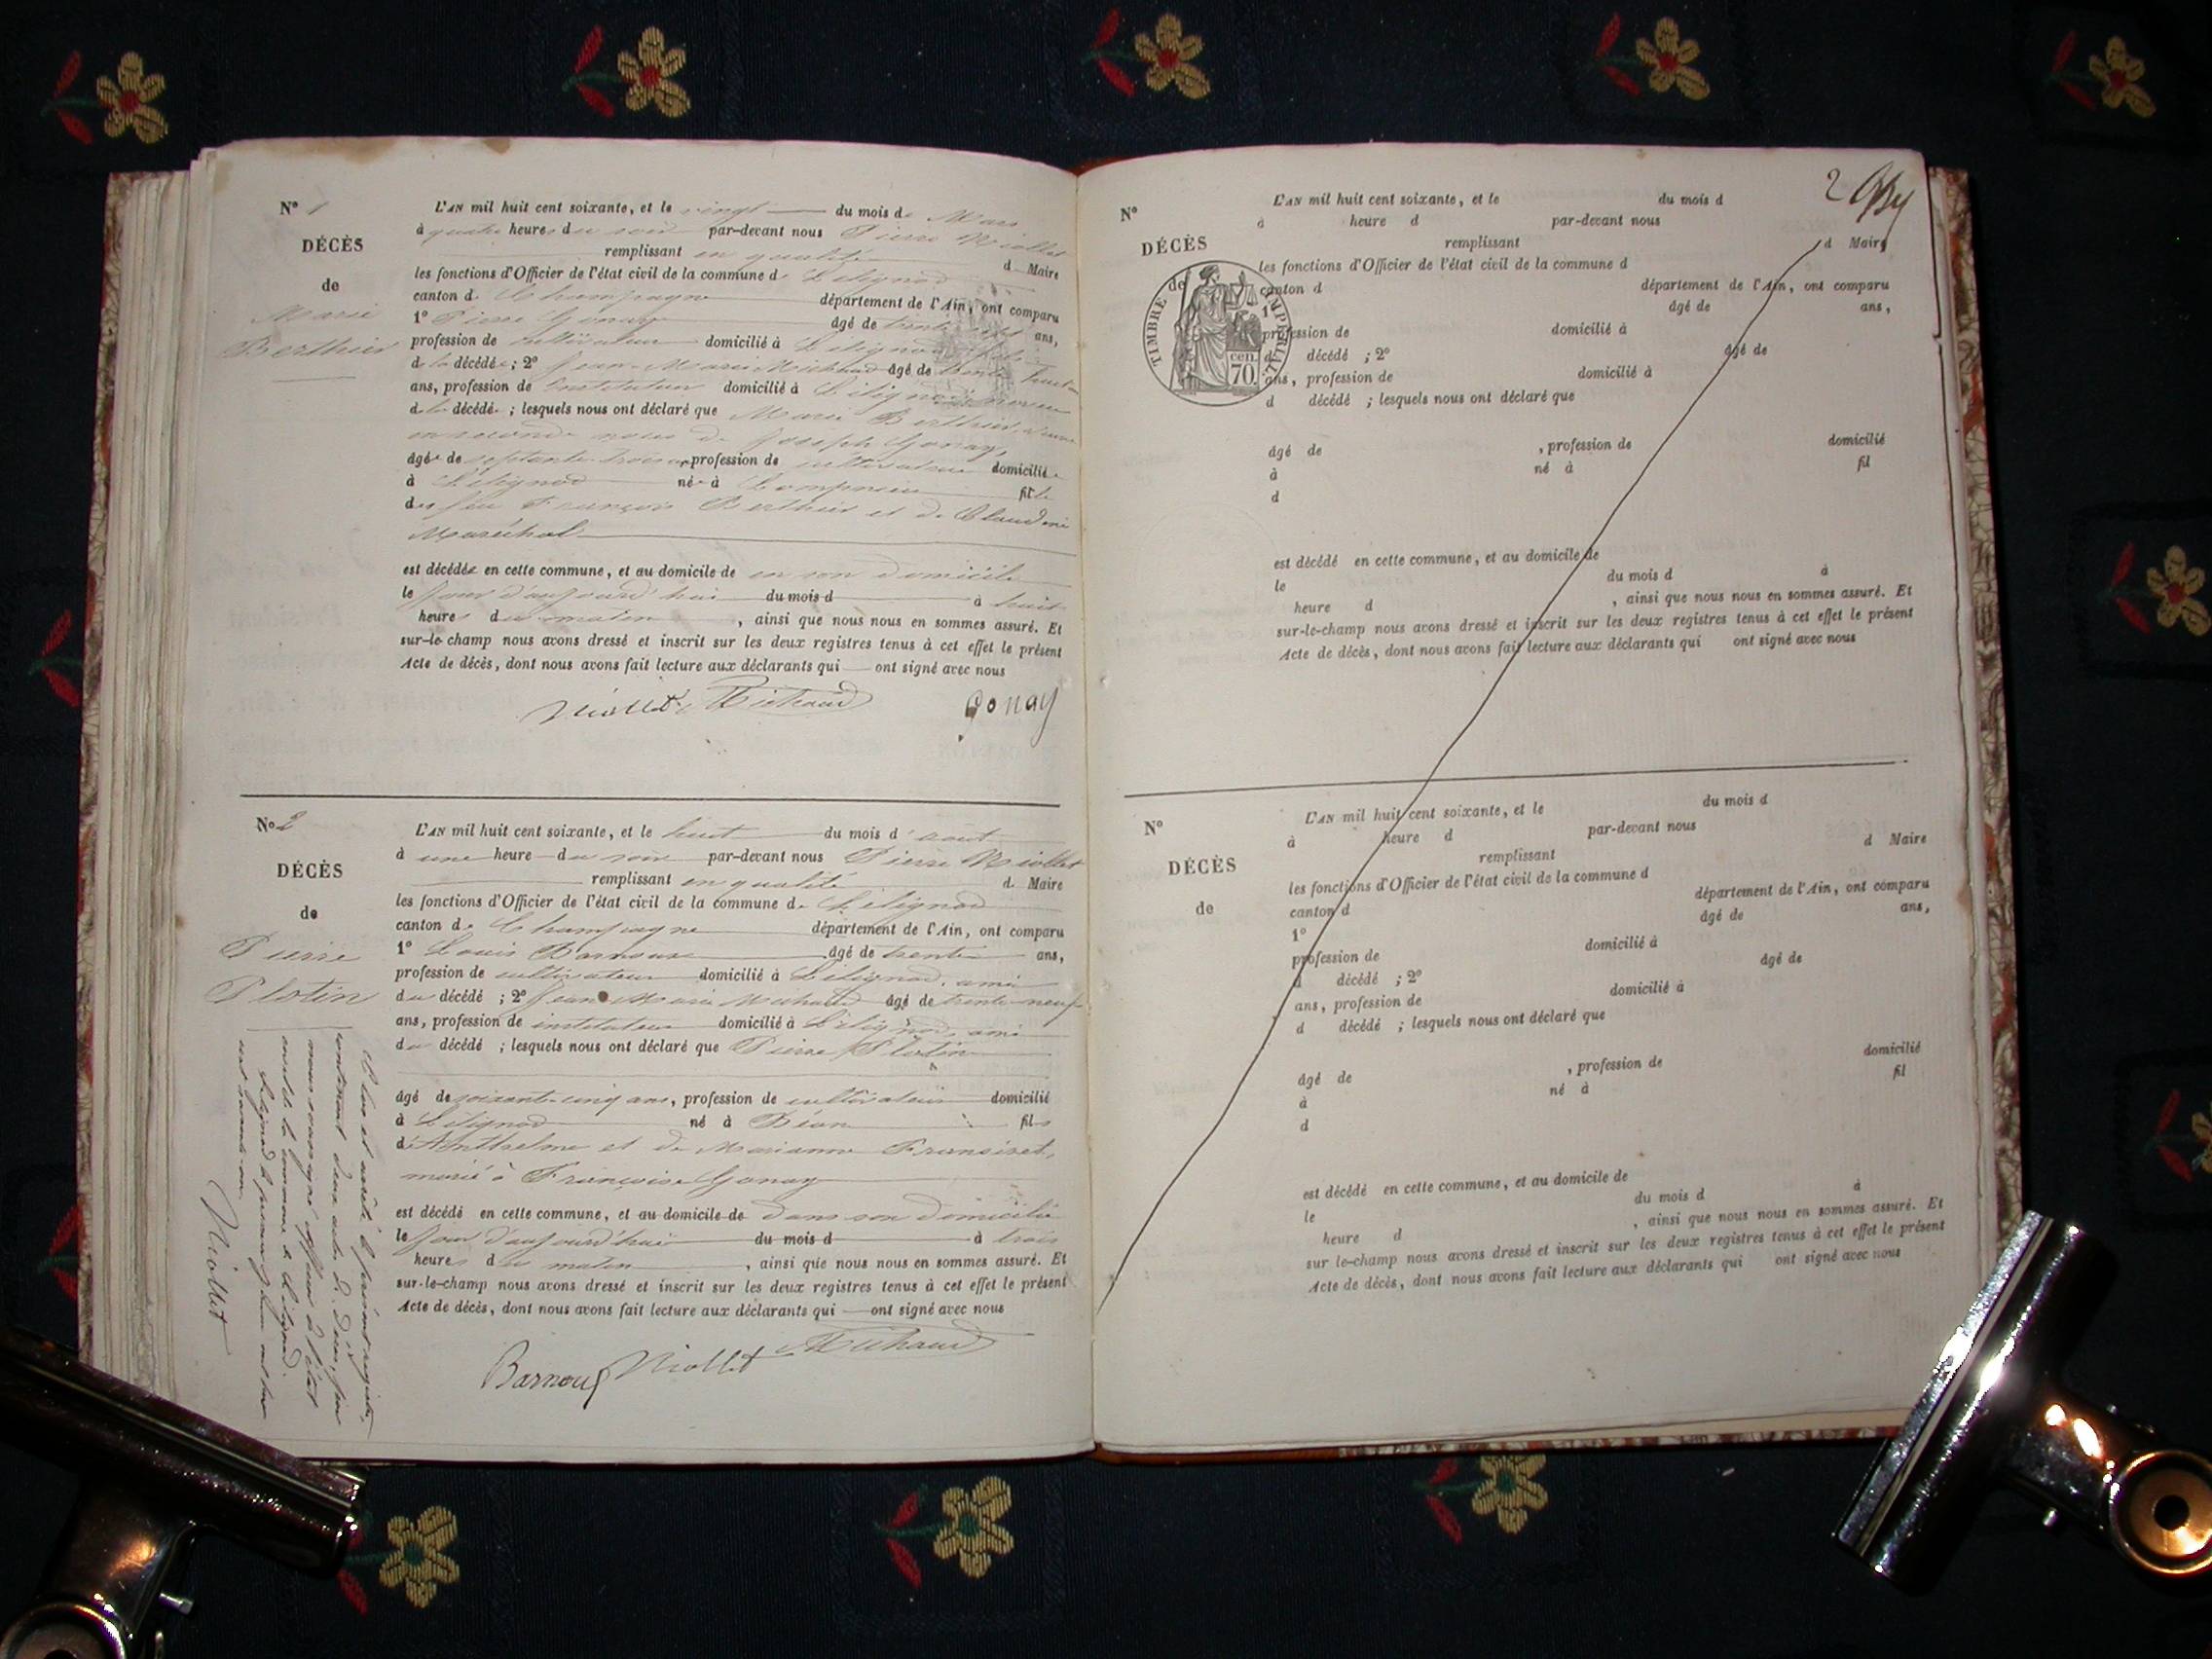 N° 1
DÉCÈS
de
Marie
Berthier
L'AN mil huit cent soixante, et le vingt du mois de Mars
à quatre heures du soir par-devant nous Pierre Niollet
remplissant en qualité d Maire
les fonctions d'Officier de l'état civil de la commune de Lilignod
canton de Champagne département de l'Ain, ont comparu
1° Pierre Gonay âgé de trente ans,
profession de cultivateur domicilié à Lilignod
de la décédée ; 2° Jean-Marie Michaud âgé de trente huit
ans, profession de instituteur domicilié à Lilignod
de la décédée ; lesquels nous ont déclaré que Marie Berthier, veuve
en seconde noces de Joseph Gonay,
âgée de septante trois ans, profession de cultivateur domicilié
à Lilignod née à fille
des feu François Berthier et de Claudine
Maréchal
est décédée en cette commune, et au domicile de en son domicile
le jour d'aujourd'hui du mois d à huit
heures du matin , ainsi que nous nous en sommes assuré. Et
sur-le-champ nous avons dressé et inscrit sur les deux registres tenus à cet effet le présent
Acte de décès, dont nous avons fait lecture aux déclarants qui ont signé avec nous
Niollet Michaud Gonay
N° 2
DÉCÈS
de
Pierre
Plotin
L'AN mil huit cent soixante, et le huit du mois d'août
à une heure du soir par-devant nous Pierre Niollet
remplissant en qualité de Maire
les fonctions d'Officier de l'état civil de la commune de Lilignod
canton de Champagne département de l'Ain, ont comparu
1° Louis Barnoux âgé de trente ans,
profession de cultivateur domicilié à Lilignod, ami
du décédé ; 2° Jean Marie Michaud âgé de trente-neuf
ans, profession de instituteur domicilié à Lilignod, ami
du décédé ; lesquels nous ont déclaré que Pierre Plotin
âgé de soixante-cinq ans, profession de cultivateur domicilié
à Lilignod né à Béon fils
d'Anthelme et de Marianne Fransiset,
marié à Françoise Gonay
est décédé en cette commune, et au domicile de dans son domicile
le jour d'aujourd'hui du mois d à trois
heures du matin , ainsi que nous nous en sommes assuré. Et
sur-le-champ nous avons dressé et inscrit sur les deux registres tenus à cet effet le présent
Acte de décès, dont nous avons fait lecture aux déclarants qui ont signé avec nous
Barnoux Niollet Michaud
Clos et arrêté le présent registre,
contenant deux actes de décès, par
nous soussigné officier de l'état
civil de la commune de Lilignod.
Lilignod le premier janvier mil huit
cent soixante-un.
Niollet
2
N°
DÉCÈS
de
TIMBRE IMPÉRIAL
70 cen.
L'AN mil huit cent soixante, et le du mois d
à heure d par-devant nous
remplissant d Maire
les fonctions d'Officier de l'état civil de la commune d
canton d département de l'Ain, ont comparu
1° âgé de ans,
profession de domicilié à
d décédé ; 2° âgé de
ans, profession de domicilié à
d décédé ; lesquels nous ont déclaré que
âgé de , profession de domicilié
à né à fil
d
est décédé en cette commune, et au domicile de
le du mois d à
heure d , ainsi que nous nous en sommes assuré. Et
sur-le-champ nous avons dressé et inscrit sur les deux registres tenus à cet effet le présent
Acte de décès, dont nous avons fait lecture aux déclarants qui ont signé avec nous
N°
DÉCÈS
de
L'AN mil huit cent soixante, et le du mois d
à heure d par-devant nous
remplissant d Maire
les fonctions d'Officier de l'état civil de la commune d
canton d département de l'Ain, ont comparu
1° âgé de ans,
profession de domicilié à
d décédé ; 2° âgé de
ans, profession de domicilié à
d décédé ; lesquels nous ont déclaré que
âgé de , profession de domicilié
à né à fil
d
est décédé en cette commune, et au domicile de
le du mois d à
heure d , ainsi que nous nous en sommes assuré. Et
sur le-champ nous avons dressé et inscrit sur les deux registres tenus à cet effet le présent
Acte de décès, dont nous avons fait lecture aux déclarants qui ont signé avec nous